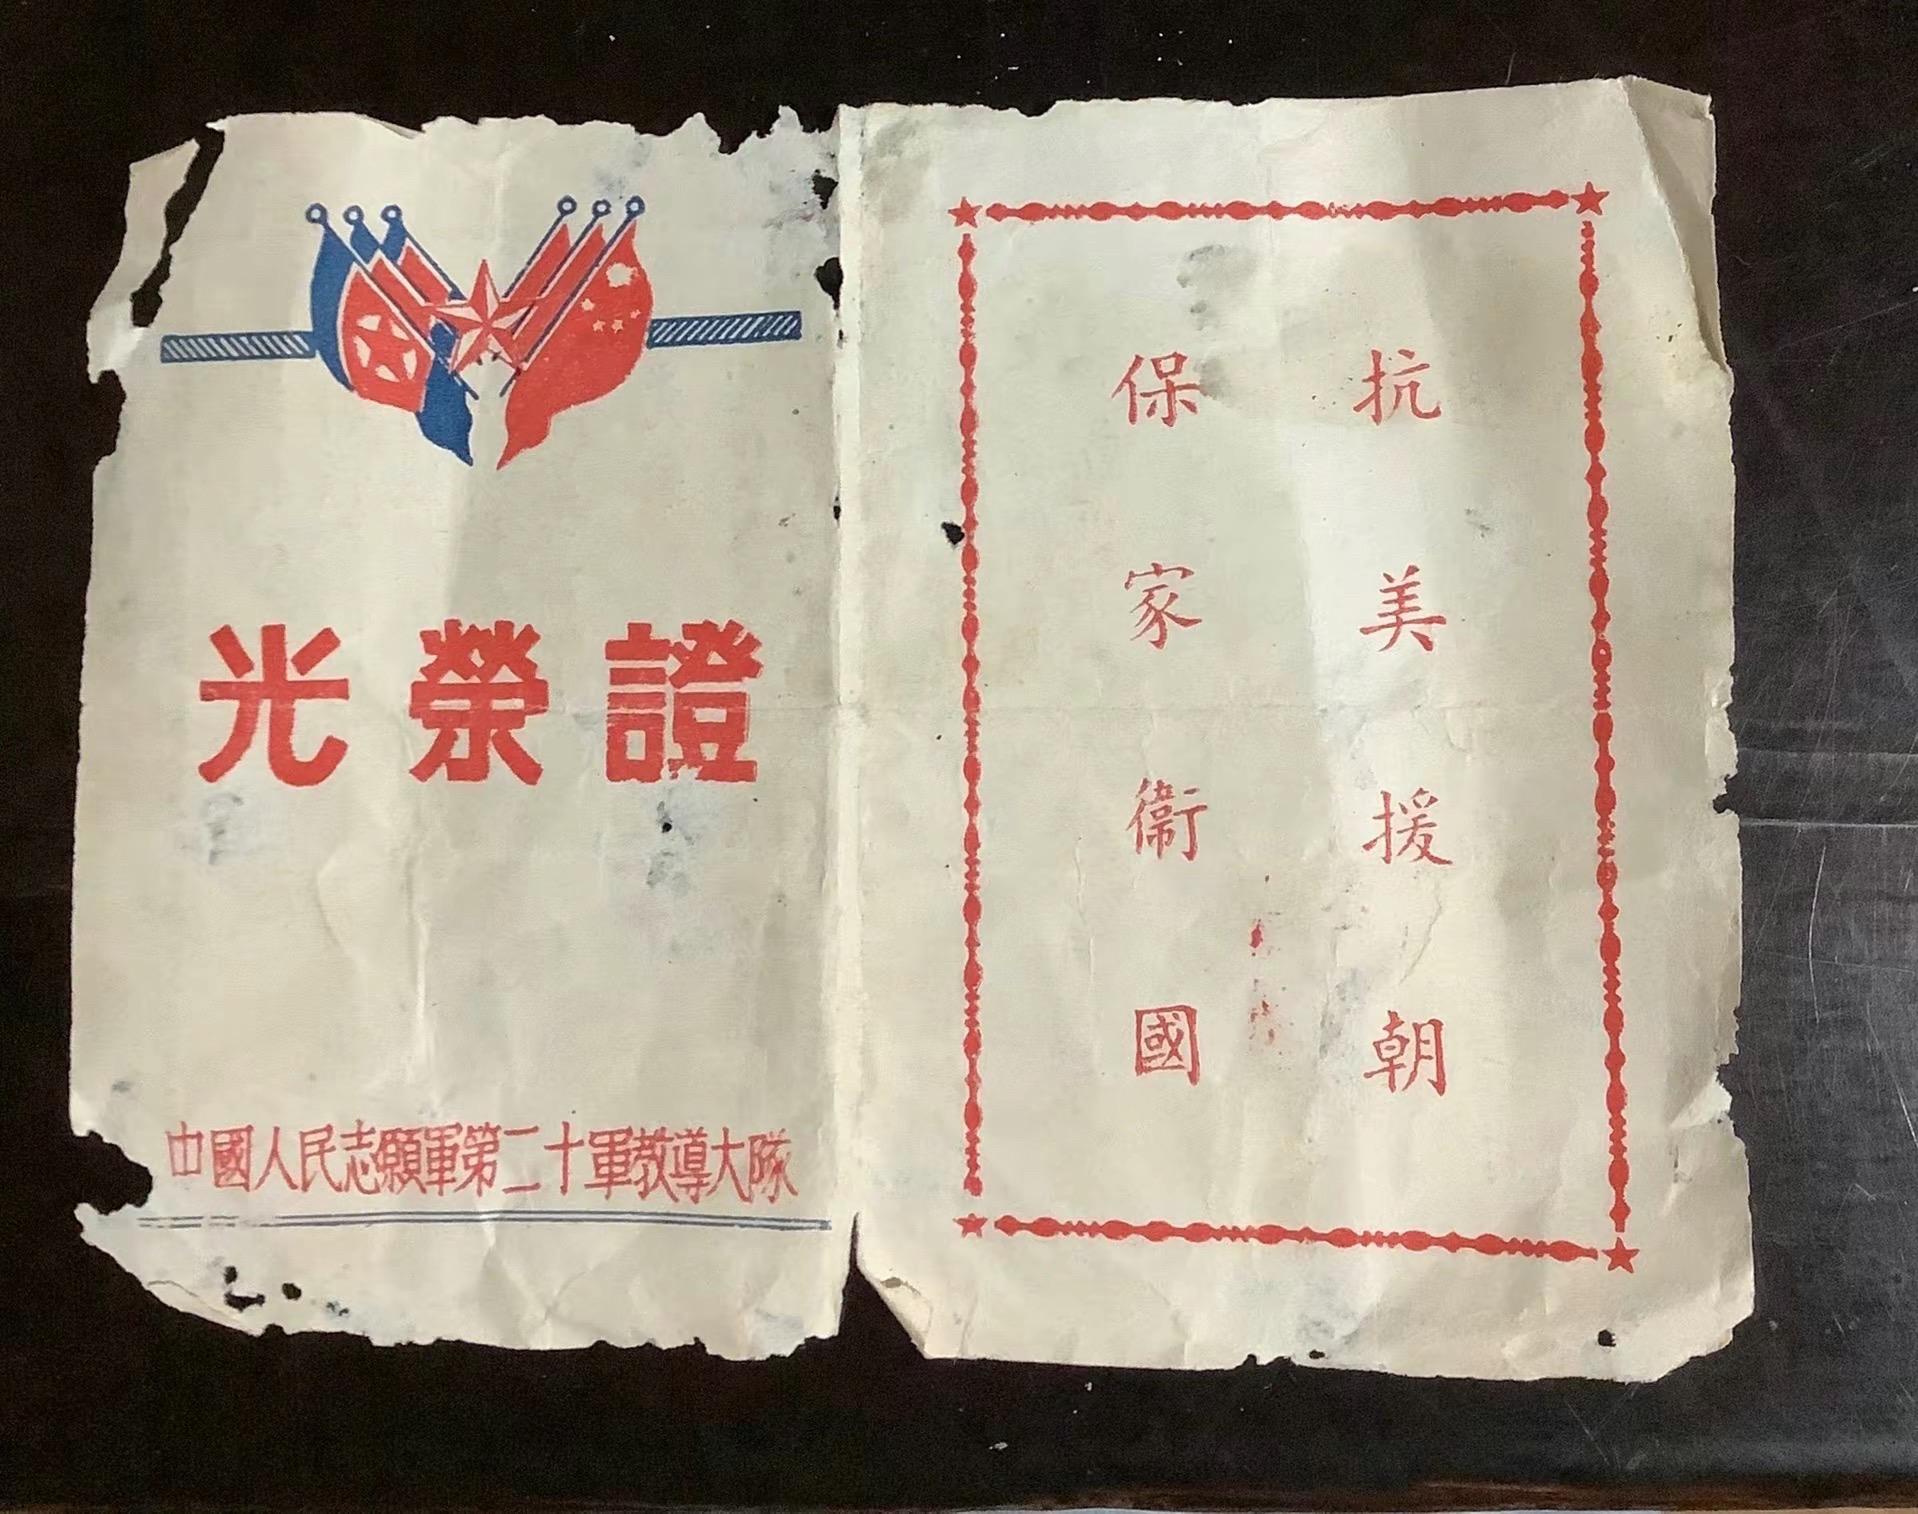 光榮證
中國人民志願軍第二十軍教導大隊
抗美援朝
保家衞國